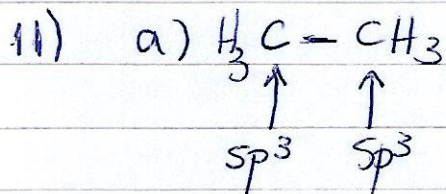 11) a) H₃C - CH₃
↑ ↑
sp³ sp³